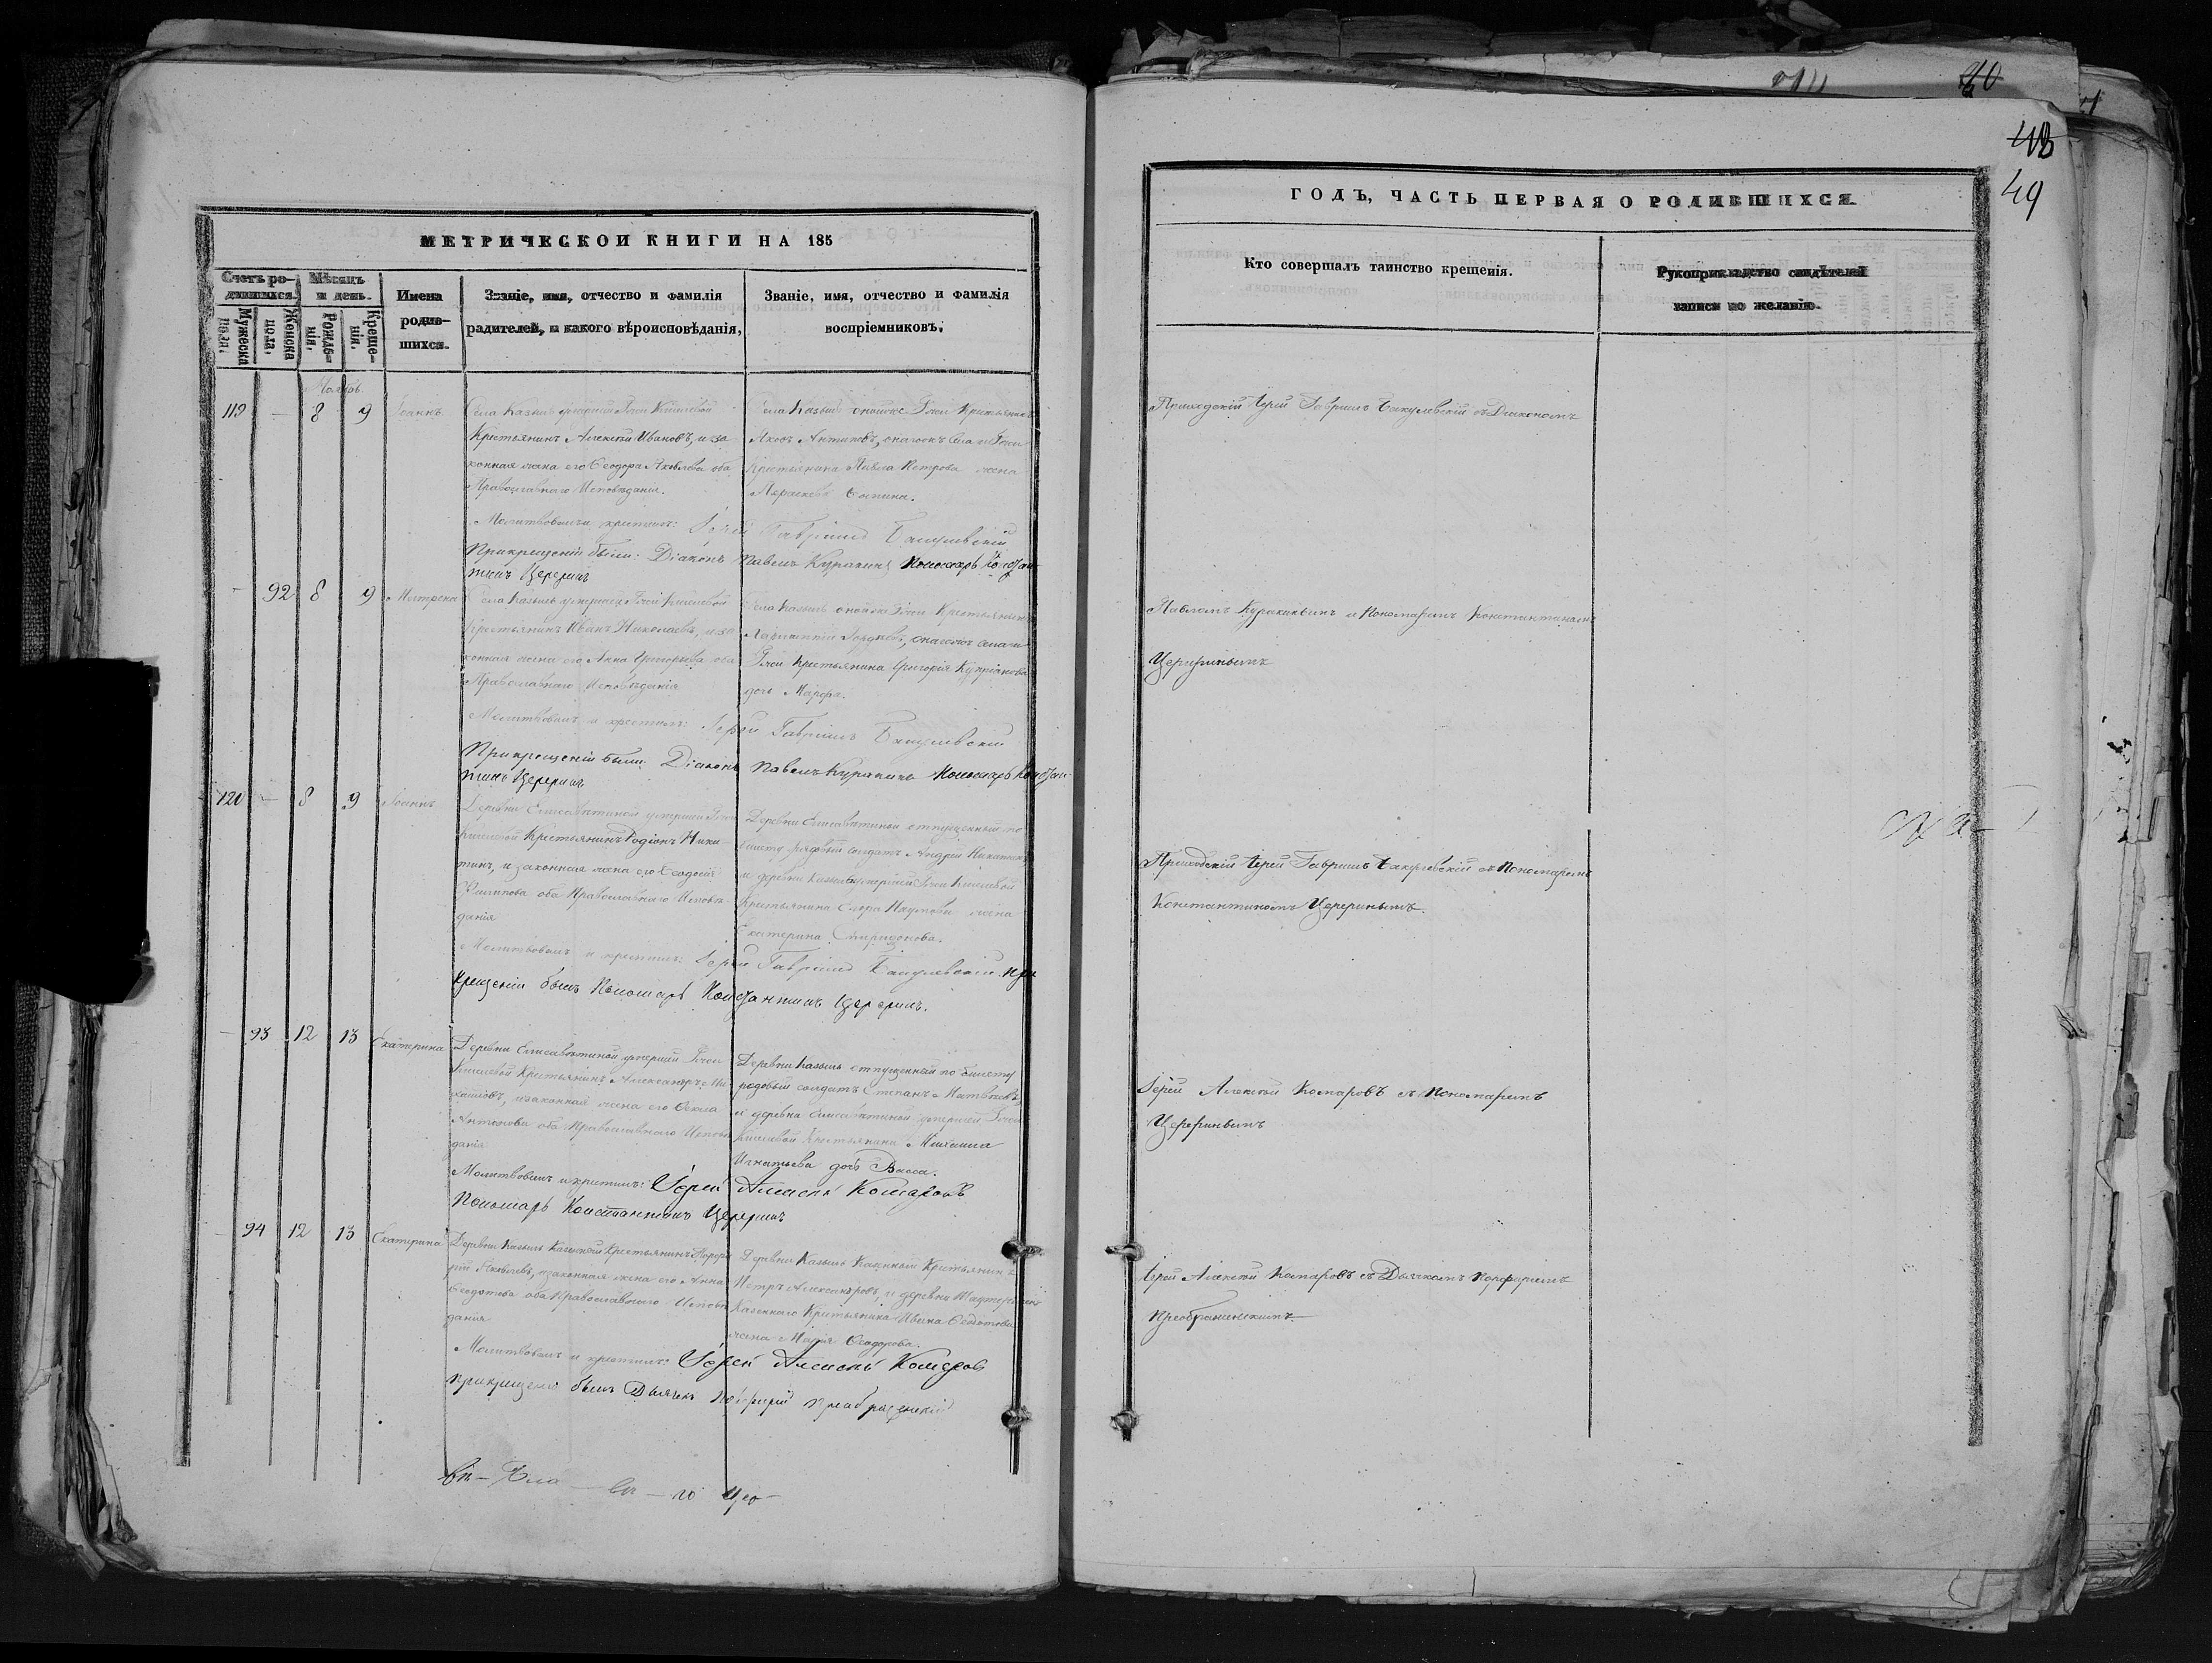 МЕТРИЧЕСКОЙ КНИГИ НА 185
Счетъ родившихся.
Мѣсяцъ и день.
Мужеска пола.
Женска пола.
Рожденія.
Крещенія.
Имена родившихся.
Званіе, имя, отчество и фамилія
радителей, и какого вѣроисповѣданія,
Званіе, имя, отчество и фамилія
воспріемниковъ.
Ноябрь
119 — 8 9 Іоаннъ
Села Казыль фтерши Гжи Киселевой
Крестьянинъ Алексѣй Ивановъ, и за
конная жена его Ѳеодора Яковлева оба
Православнаго Исповѣданія.
Села Казыль Гжи Крестьянинъ
Яковъ Антиповъ, села и Гжи
Крестьянина Павла Петрова жена
Молитвовалъ и крестилъ: Іерей Гавріилъ Бакулевскій
При крещеніи были: Діаконъ Павелъ Куракинъ Пономарь Констан
тинъ Цереринъ
— 92 8 9 Матрена
Села Казыль Гжи Киселевой
Крестьянинъ Иванъ Николаевъ, и за
конная жена его Анна Григорьева оба
Православнаго Исповѣданія
Села Казыль Гжи Крестьянинъ
Гжи Крестьянина Григорія Купріянова
дочь Марфа.
Молитвовалъ и крестилъ: Іерей Гавріилъ Бакулевскій
При крещеніи были: Діаконъ Павелъ Куракинъ Пономарь Констан
тинъ Цереринъ
120 — 8 9 Іоаннъ
Деревни Елисаветиной Гжи
Киселевой Крестьянинъ Родіонъ Ники
тинъ, и законная жена его Ѳеодосія
Филипова оба Православнаго Исповѣ
данія
Деревни Елисаветиной отпущенный по
билету рядовый солдатъ Андрей Никитинъ
и деревни Казыль Гжи Киселевой
Крестьянина Егора Наумова жена
Екатерина Спиридонова.
Молитвовалъ и крестилъ: Іерей Гавріилъ Бакулевскій при
Крещеніи былъ Пономарь Константинъ Цереринъ.
— 93 12 13 Екатерина
Деревни Елисаветиной Гжи
Киселевой Крестьянинъ Александръ Ми
хайловъ, и законная жена его Ѳекла
Антонова оба Православнаго Исповѣ
данія
Деревни Казыль отпущенный по билету
рядовый солдатъ Степанъ Матвѣевъ
и деревни Елисаветиной Гжи
Киселевой Крестьянина Михаила
Игнатьева дочь Васса.
Молитвовалъ и крестилъ: Іерей Алексѣй Комаровъ
Пономарь Константинъ Цереринъ
— 94 12 13 Екатерина
Деревни Казыль Казенный Крестьянинъ Порфи
рій Яковлевъ, и законная жена его Анна
Ѳедотова оба Православнаго Исповѣ
данія
Деревни Казыль Казенный Крестьянинъ
Петръ Александровъ, и деревни
Казеннаго Крестьянина Ивана Ѳедотова
жена Марія Ѳеодорова.
Молитвовалъ и крестилъ: Іерей Алексѣй Комаровъ
При крещеніи былъ Дьячекъ Порфирій Преображенскій
42
49
ГОДЪ, ЧАСТЬ ПЕРВАЯ О РОДИВШИХСЯ
Кто совершалъ таинство крещенія.
Рукоприкладство свидѣтелей
записи по желанію.
Приходскій Іерей Гавріилъ Бакулевскій съ Діакономъ
Павломъ Куракинымъ и Пономаремъ Константиномъ
Цереринымъ
Приходскій Іерей Гавріилъ Бакулевскій съ Пономаремъ
Константиномъ Цереринымъ.
Іерей Алексѣй Комаровъ съ Пономаремъ
Цереринымъ
Іерей Алексѣй Комаровъ съ Дьячкомъ Порфиріемъ
Преображенскимъ.